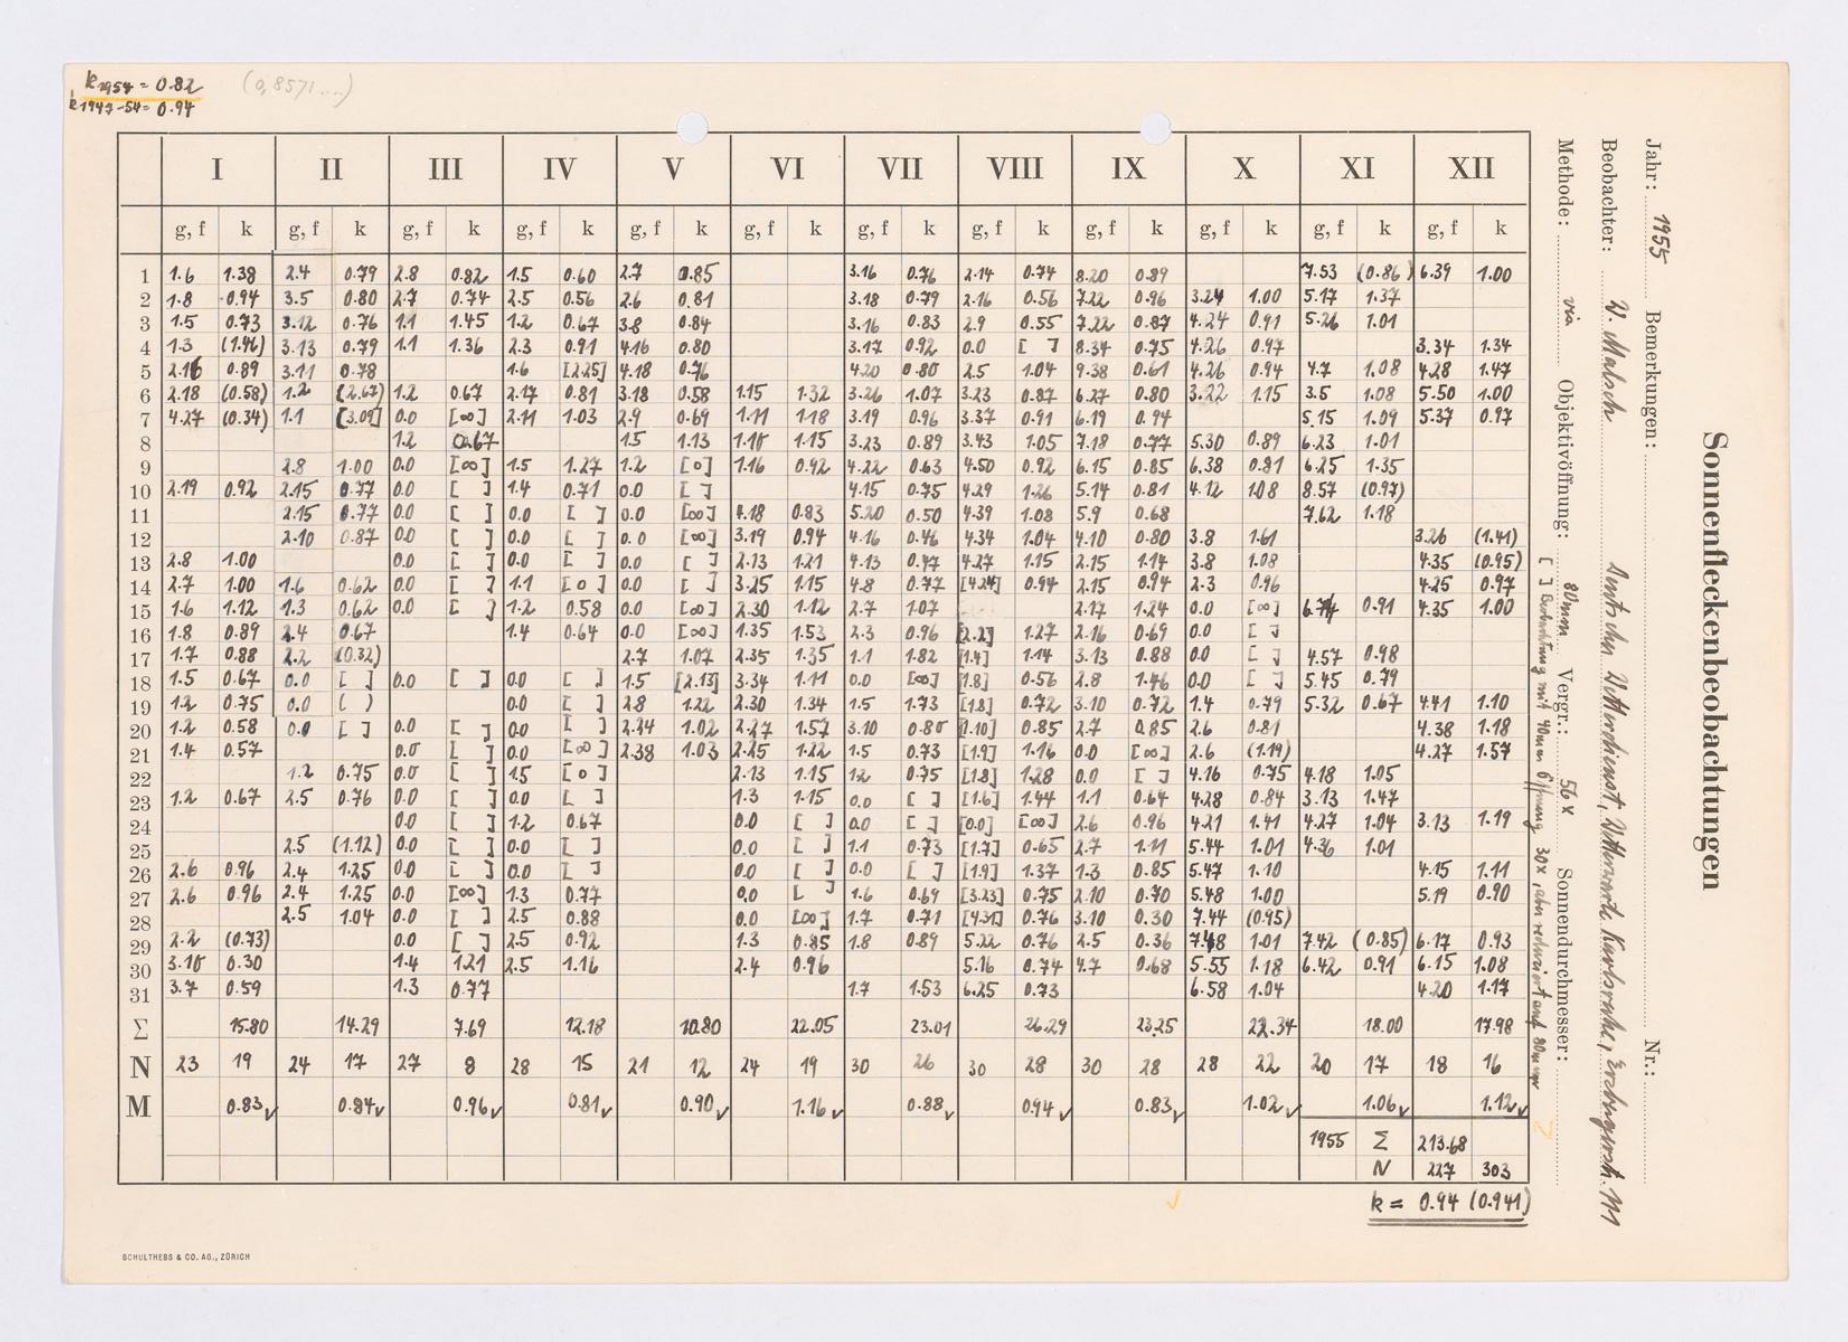 k1954 = 0.82 (0,8571....)
k1947-54 = 0.94
Sonnenfleckenbeobachtungen
Jahr: 1955 Bemerkungen: Nr.:
Beobachter: W. Malsch Deutscher Wetterdienst, Wetterwarte Karlsruhe, Erzbergerstr. 111
Methode: vis Objektivöffnung: 80mm Vergr.: 56x Sonnendurchmesser:
[ ] Beobachtung mit 40mm Öffnung 30x, aber reduziert auf 80mm
I II III IV V VI VII VIII IX X XI XII
g, f k g, f k g, f k g, f k g, f k g, f k g, f k g, f k g, f k g, f k g, f k g, f k
1 1.6 1.38 2.4 0.79 2.8 0.82 1.5 0.60 2.7 0.85 3.16 0.76 2.14 0.74 8.20 0.89 7.53 (0.86) 6.39 1.00
2 1.8 0.94 3.5 0.80 2.7 0.74 2.5 0.56 2.6 0.81 3.18 0.79 2.16 0.56 7.22 0.96 3.24 1.00 5.17 1.37
3 1.5 0.73 3.12 0.76 1.1 1.45 1.2 0.67 3.8 0.84 3.16 0.83 2.9 0.55 7.22 0.87 4.24 0.91 5.26 1.01
4 1.3 (1.46) 3.13 0.79 1.1 1.36 2.3 0.91 4.16 0.80 3.17 0.92 0.0 [ ] 8.34 0.75 4.26 0.97 3.34 1.34
5 2.16 0.89 3.11 0.78 1.6 [2.25] 4.18 0.76 4.20 0.80 2.5 1.04 9.38 0.61 4.26 0.94 4.7 1.08 4.28 1.47
6 2.18 (0.58) 1.2 (2.67) 1.2 0.67 2.17 0.81 3.18 0.58 1.15 1.32 3.26 1.07 3.23 0.87 6.27 0.80 3.22 1.15 3.5 1.08 5.50 1.00
7 4.27 (0.34) 1.1 [3.09] 0.0 [∞] 2.11 1.03 2.9 0.69 1.11 1.18 3.19 0.96 3.37 0.91 6.19 0.94 5.15 1.09 5.37 0.97
8 1.2 0.67 1.5 1.13 1.10 1.15 3.23 0.89 3.43 1.05 7.18 0.77 5.30 0.89 6.23 1.01
9 2.8 1.00 0.0 [∞] 1.5 1.27 1.2 [0] 1.16 0.92 4.22 0.63 4.50 0.92 6.15 0.85 6.38 0.81 6.25 1.35
10 2.19 0.92 2.15 0.77 0.0 [ ] 1.4 0.71 0.0 [ ] 4.15 0.75 4.29 1.26 5.14 0.81 4.12 1.08 8.57 (0.97)
11 2.15 0.77 0.0 [ ] 0.0 [ ] 0.0 [∞] 4.18 0.83 5.20 0.50 4.39 1.08 5.9 0.68 7.62 1.18
12 2.10 0.87 0.0 [ ] 0.0 [ ] 0.0 [∞] 3.19 0.94 4.16 0.46 4.34 1.04 4.10 0.80 3.8 1.61 3.26 (1.41)
13 2.8 1.00 0.0 [ ] 0.0 [ ] 0.0 [ ] 2.13 1.21 4.13 0.47 4.27 1.15 2.15 1.14 3.8 1.08 4.35 (0.95)
14 2.7 1.00 1.6 0.62 0.0 [ ] 1.1 [0] 0.0 [ ] 3.25 1.15 4.8 0.77 [4.24] 0.94 2.15 0.94 2.3 0.96 4.25 0.97
15 1.6 1.12 1.3 0.62 0.0 [ ] 1.2 0.58 0.0 [∞] 2.30 1.12 2.7 1.07 2.17 1.24 0.0 [∞] 6.74 0.91 4.35 1.00
16 1.8 0.89 2.4 0.67 1.4 0.64 0.0 [∞] 1.35 1.53 2.3 0.96 [2.2] 1.27 2.16 0.69 0.0 [ ]
17 1.7 0.88 2.2 (0.32) 2.7 1.07 2.35 1.35 1.1 1.82 [1.4] 1.14 3.13 0.88 0.0 [ ] 4.57 0.98
18 1.5 0.67 0.0 [ ] 0.0 [ ] 0.0 [ ] 1.5 [2.13] 3.34 1.11 0.0 [∞] [1.8] 0.56 2.8 1.46 0.0 [ ] 5.45 0.79
19 1.2 0.75 0.0 ( ) 0.0 [ ] 2.8 1.22 2.30 1.34 1.5 1.73 [1.8] 0.72 3.10 0.72 1.4 0.79 5.32 0.67 4.41 1.10
20 1.2 0.58 0.0 [ ] 0.0 [ ] 0.0 [ ] 2.24 1.02 2.27 1.57 3.10 0.80 [1.10] 0.85 2.7 0.85 2.6 0.81 4.38 1.18
21 1.4 0.57 0.0 [ ] 0.0 [∞] 2.38 1.03 2.25 1.22 1.5 0.73 [1.9] 1.16 0.0 [∞] 2.6 (1.19) 4.27 1.57
22 1.2 0.75 0.0 [ ] 1.5 [0] 2.13 1.15 1.2 0.75 [1.8] 1.28 0.0 [ ] 4.16 0.75 4.18 1.05
23 1.2 0.67 2.5 0.76 0.0 [ ] 0.0 [ ] 1.3 1.15 0.0 [ ] [1.6] 1.44 1.1 0.64 4.28 0.84 3.13 1.47
24 0.0 [ ] 1.2 0.67 0.0 [ ] 0.0 [ ] [0.0] [∞] 2.6 0.96 4.21 1.41 4.27 1.04 3.13 1.19
25 2.5 (1.12) 0.0 [ ] 0.0 [ ] 0.0 [ ] 1.1 0.73 [1.7] 0.65 2.7 1.11 5.44 1.01 4.36 1.01
26 2.6 0.96 2.4 1.25 0.0 [ ] 0.0 [ ] 0.0 [ ] 0.0 [ ] [1.9] 1.37 1.3 0.85 5.47 1.10 4.15 1.11
27 2.6 0.96 2.4 1.25 0.0 [∞] 1.3 0.77 0.0 [ ] 1.6 0.69 [3.23] 0.75 2.10 0.70 5.48 1.00 5.19 0.90
28 2.5 1.04 0.0 [ ] 2.5 0.88 0.0 [∞] 1.7 0.71 [4.31] 0.76 3.10 0.30 7.44 (0.95)
29 2.2 (0.73) 0.0 [ ] 2.5 0.92 1.3 0.85 1.8 0.89 5.22 0.76 2.5 0.36 7.48 1.01 7.42 (0.85) 6.17 0.93
30 3.10 0.30 1.4 1.21 2.5 1.16 2.4 0.96 5.16 0.74 4.7 0.68 5.55 1.18 6.42 0.91 6.15 1.08
31 3.7 0.59 1.3 0.77 1.7 1.53 6.25 0.73 6.58 1.04 4.20 1.17
Σ 15.80 14.29 7.69 12.18 10.80 22.05 23.01 26.29 23.25 22.34 18.00 17.98
N 23 19 24 17 27 8 28 15 21 12 24 19 30 26 30 28 30 28 28 22 20 17 18 16
M 0.83✓ 0.84✓ 0.96✓ 0.81✓ 0.90✓ 1.16✓ 0.88✓ 0.94✓ 0.83✓ 1.02✓ 1.06✓ 1.12✓
1955 Σ 213.68
N 227 303
k = 0.94 (0.941)
SCHULTHESS & CO. AG., ZÜRICH